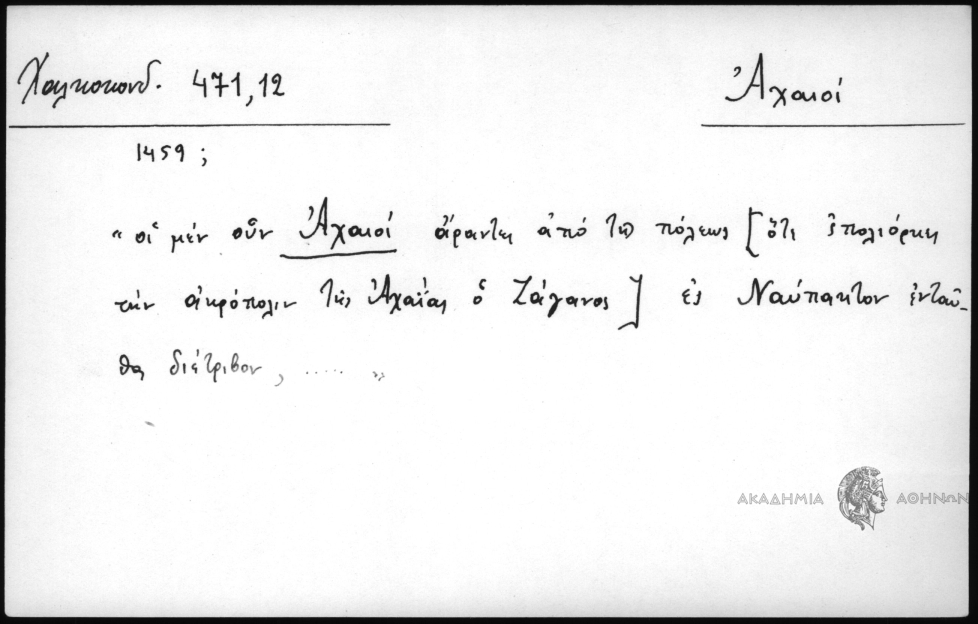 Χαλκοκονδ. 471,12
Ἀχαιοί
1459 ;
« οἱ μέν οὖν Ἀχαιοί ἄραντες ἀπό τῆς πόλεως [ὅτι ἐπολιόρκει
τήν ἀκρόπολιν τῆς Ἀχαΐας ὁ Ζάγανος] ἐς Ναύπακτον ἐνταῦ-
θα διέτριβον, ..... »
ΑΚΑΔΗΜΙΑ ΑΘΗΝΩΝ